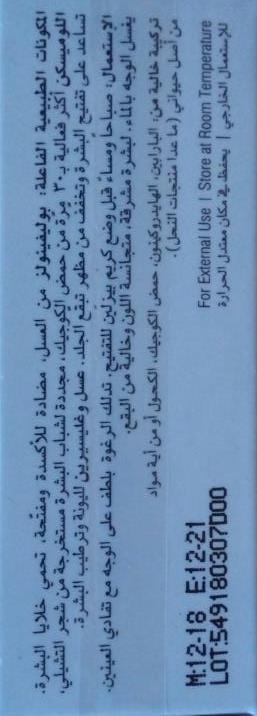 المكونات الطبيعية الفاعلة: بوليفينولز من العسل، مضادة للأكسدة ومفتحة، تحمي خلايا البشرة.
اللوميسكن أكثر فعالية بـ ٣٠ مرة من حمض الكوجيك، مجددة لشباب البشرة مستخرجة من شجر التشيلي،
تساعد على تفتيح البشرة وتخفف من مظهر تبقع الجلد. عسل وغليسيرين لليونة وترطيب البشرة.
الإستعمال: صباحاً ومساءً قبل وضع كريم بيزلين للتفتيح، تدلك الرغوة بلطف على الوجه مع تفادي العينين.
يغسل الوجه بالماء. لبشرة مشرقة، متجانسة اللون وخالية من البقع.
تركيبة خالية من: البارابين، الهايدروكينون، حمض الكوجيك، الكحول أو من أية مواد
من أصل حيواني (ما عدا منتجات النحل).
For External Use | Store at Room Temperature
للإستعمال الخارجي | يحفظ في مكان معتدل الحرارة
M:12-18 E:12-21
LOT:549180307D00